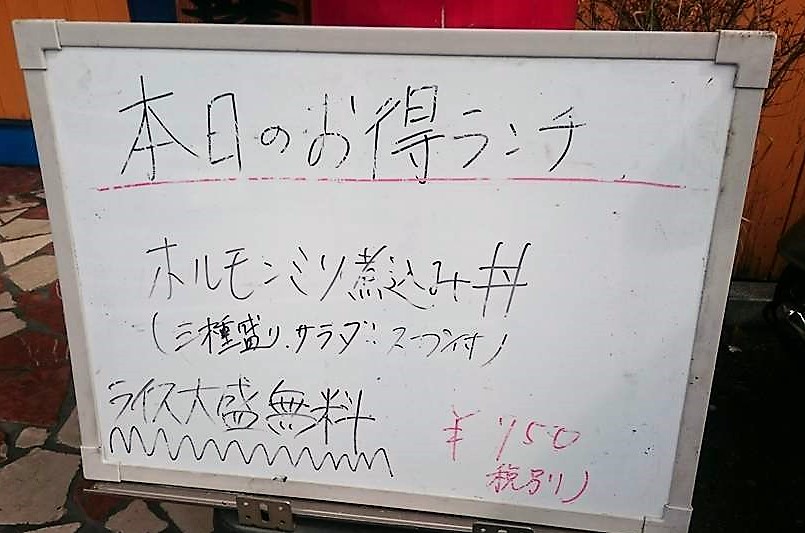 本日のお得ランチ
ホルモンミソ煮込み丼
(三種盛り、サラダ、スープ付)
ライス大盛無料
¥750
税別)